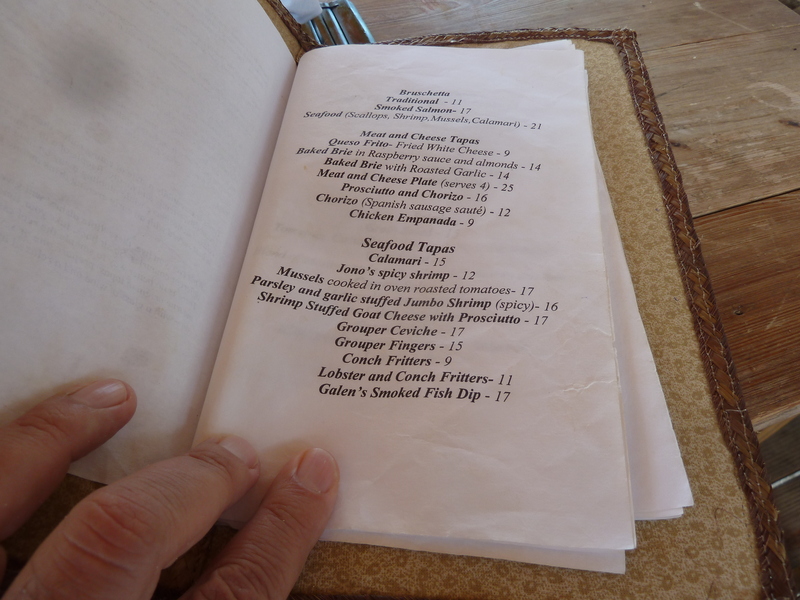 Bruschetta
Traditional - 11
Smoked Salmon- 17
Seafood (Scallops, Shrimp,Mussels,Calamari) - 21
Meat and Cheese Tapas
Queso Frito- Fried White Cheese - 9
Baked Brie in Raspberry sauce and almonds - 14
Baked Brie with Roasted Garlic - 14
Meat and Cheese Plate (serves 4) - 25
Prosciutto and Chorizo - 16
Chorizo (Spanish sausage sauté) - 12
Chicken Empanada - 9
Seafood Tapas
Calamari - 15
Jono's spicy shrimp - 12
Mussels cooked in oven roasted tomatoes- 17
Parsley and garlic stuffed Jumbo Shrimp (spicy)- 16
Shrimp Stuffed Goat Cheese with Prosciutto - 17
Grouper Ceviche - 17
Grouper Fingers - 15
Conch Fritters - 9
Lobster and Conch Fritters- 11
Galen's Smoked Fish Dip - 17